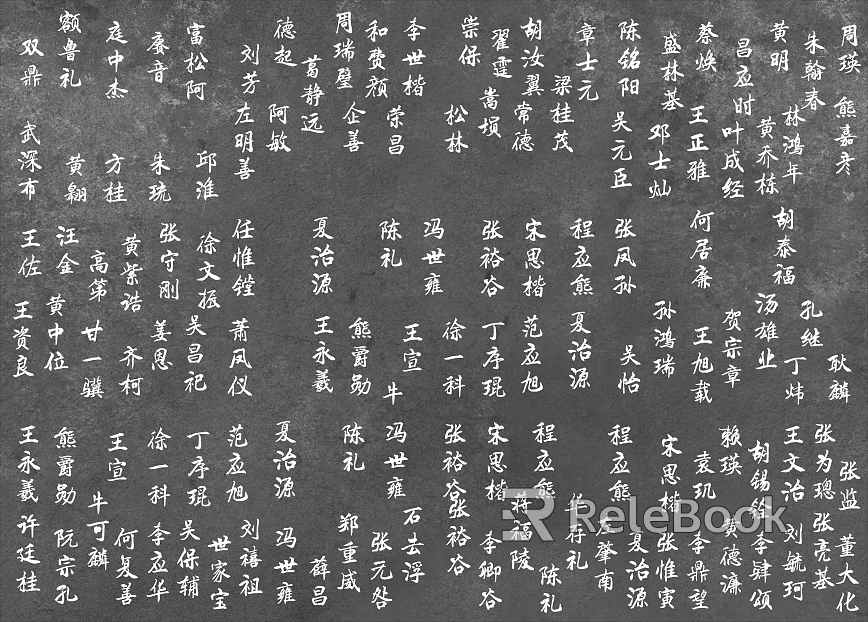 周瑛
熊嘉彦
朱翰春
黄明
林鸿年
昌应时
黄乔栋
蔡焕
叶成经
盛林基
王正雅
邓士灿
陈铭阳
吴元臣
章士元
梁桂茂
胡汝翼
常德
翟霆
嵩埙
崇保
松林
李世楷
荣昌
和费颜
周瑞璧
企善
葛静远
德起
阿敏
刘芳
左明善
富松阿
邱淮
赓音
朱琉
庭中杰
方桂
额鲁礼
黄翱
双鼎
武深布
胡泰福
何居廉
张凤孙
程应熊
宋思楷
张裕谷
冯世雍
陈礼
夏治源
任惟镗
徐文振
张守刚
黄紫诰
高第
汪金
王佐
耿麟
孔继
丁炜
汤雄业
贺宗章
王旭载
孙鸿瑞
吴怡
夏治源
范应旭
丁序琨
徐一科
王宣
牛
熊爵勋
王永羲
萧凤仪
吴昌祀
姜恩
齐柯
甘一骥
黄中位
王资良
张监
董大化
张为璁
张亮基
王文治
刘毓珂
胡锡铨
李肄颂
赖瑛
黄德濂
袁玑
李鼎望
宋思楷
张惟寅
程应熊
夏治源
左肇南
华存礼
程应熊
陈礼
蒋福陵
宋思楷
李卿谷
张裕谷
张裕谷
冯世雍
石去浮
张元咎
陈礼
郑重威
薛昌
夏治源
冯世雍
范应旭
刘禧祖
世家宝
丁序琨
吴保辅
徐一科
李应华
王宣
何复善
牛可麟
熊爵勋
阮宗孔
王永羲
许廷桂
ReleBook